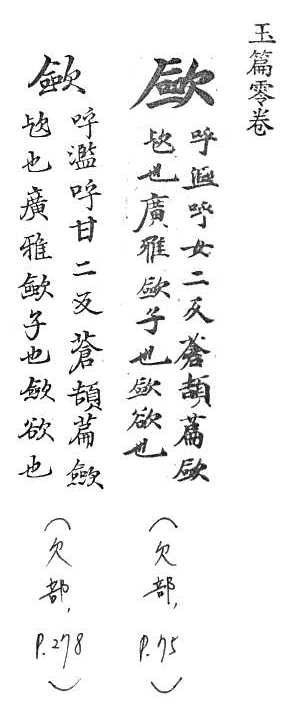 玉篇零卷
歛
呼濫呼女二反蒼頡篇歛
㰸也廣雅歛予也歛欲也
(欠部, P.75)
歛
呼濫呼甘二反蒼頡篇歛
㰸也廣雅歛予也歛欲也
(欠部, P.278)